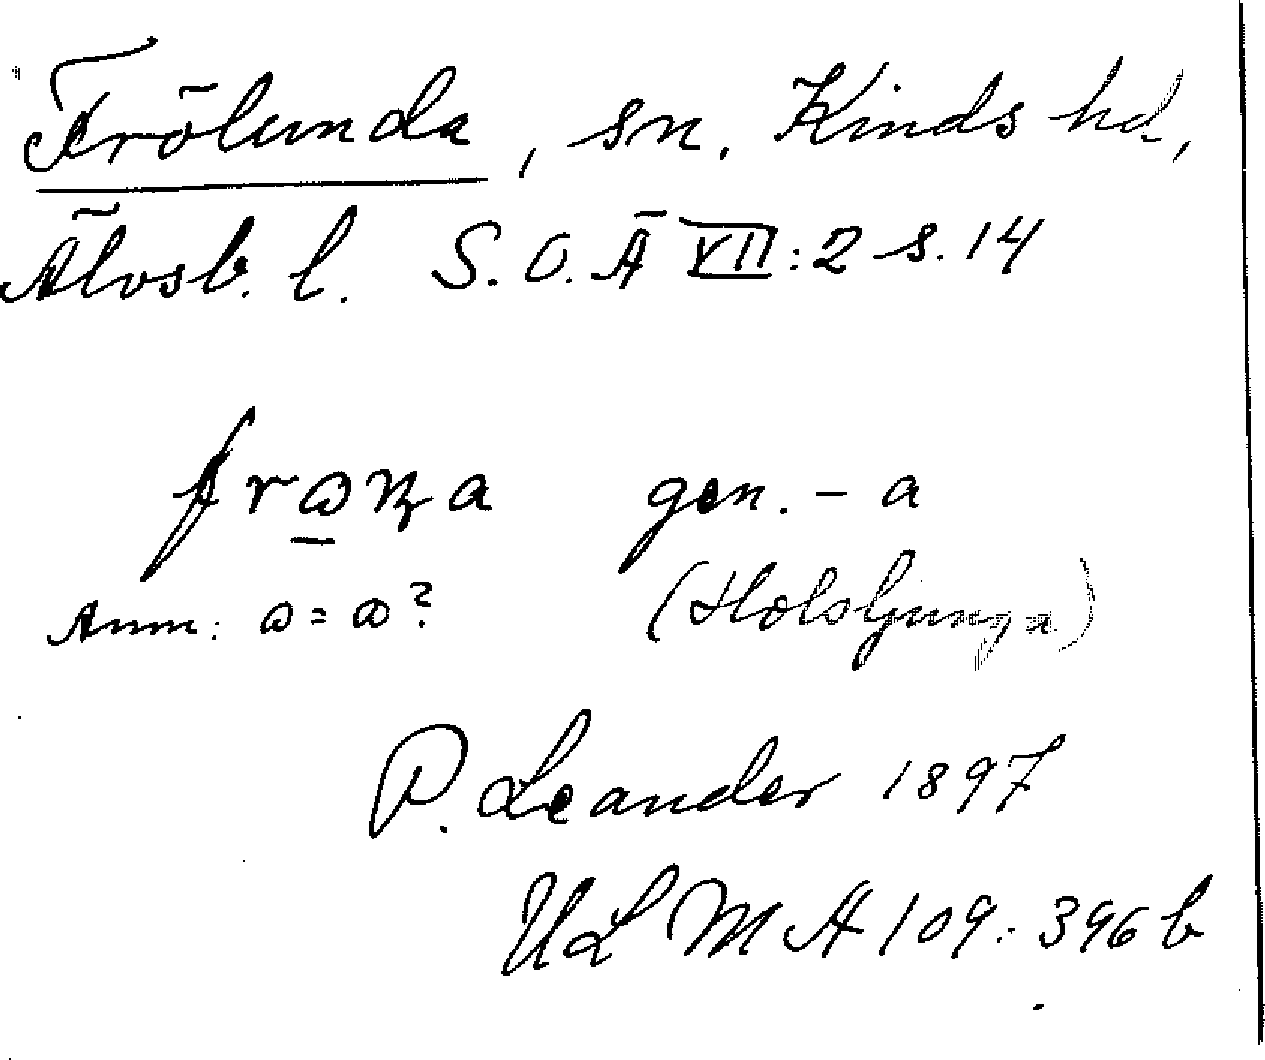 Frölunda, sn. Kinds hd,
Älvsb. l. S. O. Ä VII:2 s. 14
gen. - a
Anm:
(Holsljunga)
P. Leander 1897
ULMA 109:396 b